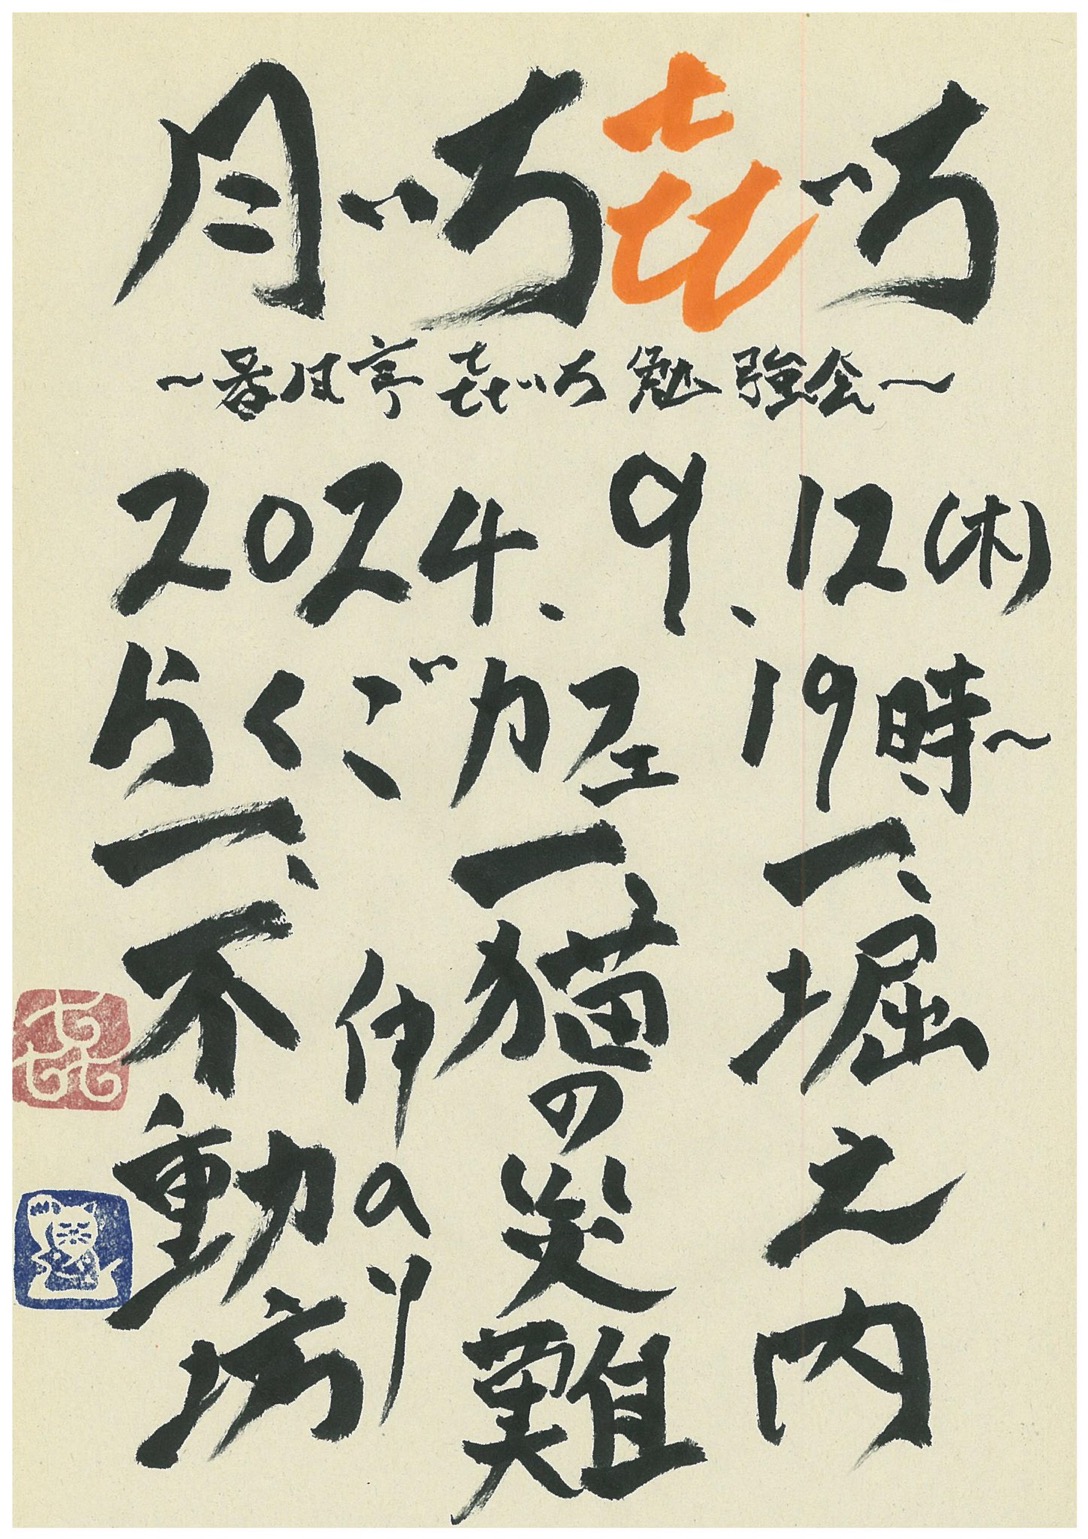 月いち㐂いち
～春風亭㐂いち勉強会～
2024.9.12(木)
らくごカフェ 19時～
一、堀之内
一、猫の災難
伊のり
一、不動坊
㐂